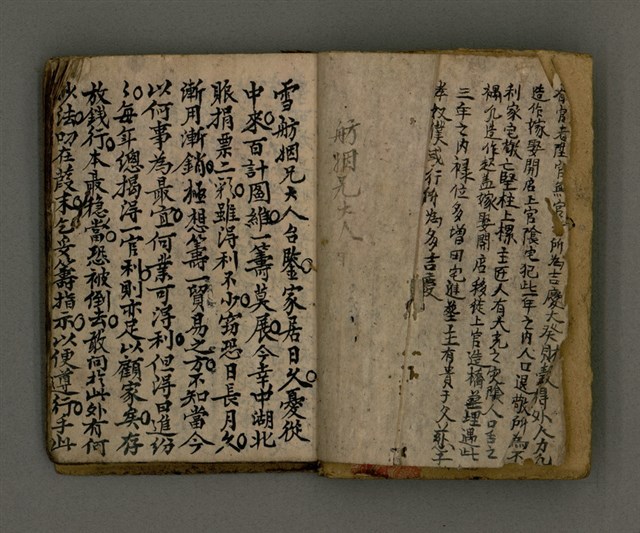 有官者陞官無官 所為吉慶大發財穀得外人力凡
造作嫁娶開店上官陰宅犯此一年之內人口退散所為不
利家宅敗亡豎柱上樑主匠人有大充之
禍凡造作起蓋嫁娶開店移徙上官造橋 埋遇此
三年之內祿位多增田宅進 主有貴子
奴僕 行所為多吉慶
舫姻兄大人
雪舫姻兄大人台鑒家居日久憂從
中來百計圖維一籌莫展今幸中湖北
賑捐票二彩雖得利不少窃恐日長月久
漸用漸銷極想籌一貿易之方不知當今
以何事為最宜何業可得利但得日進份
〻每年總揭得一官利則亦足以顧家矣存
放錢行本最穩當恐被倒去敢問於此外有何
妙法叨在葭末乞妥籌指示以便遵行手此